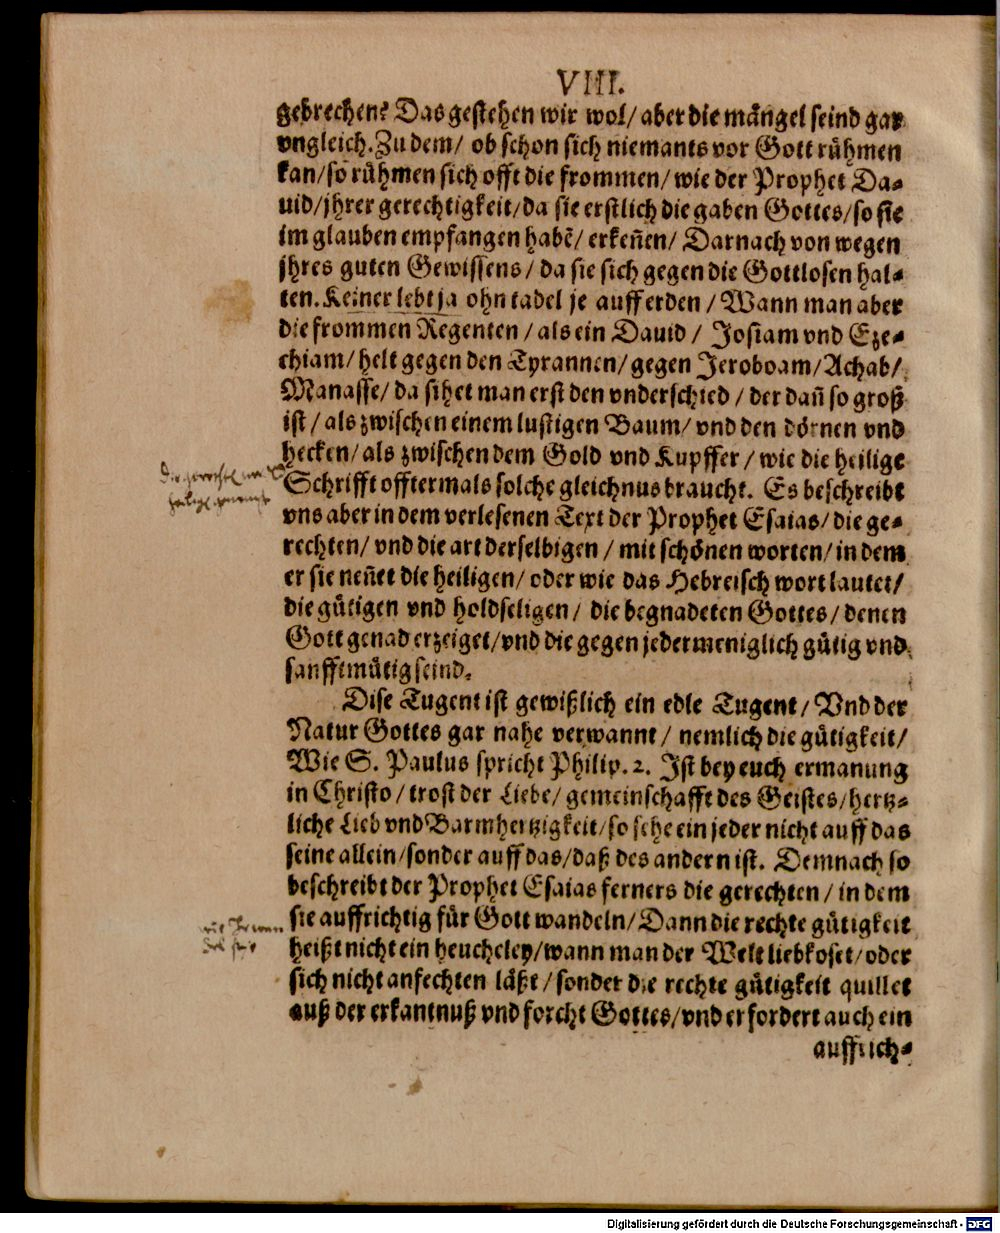 VIII.
gebrechen? Das gestehen wir wol/ aber die mängel seind gar
vngleich. Zu dem/ ob schon sich niemants vor Gott rühmen
kan/ so rühmen sich offt die frommen/ wie der Prophet Da-
uid/ jhrer gerechtigkeit/ da sie erstlich die gaben Gottes/ so sie
im glauben empfangen habẽ/ erkeñen/ Darnach von wegen
jhres guten Gewissens/ da sie sich gegen die Gottlosen hal-
ten. Keiner lebt ja ohn tadel je auff erden/ Wann man aber
die frommen Regenten/ als ein Dauid/ Josiam vnd Eze-
chiam/ helt gegen den Tyrannen/ gegen Jeroboam/ Achab/
Manasse/ da sihet man erst den vnderschied/ der dañ so groß
ist/ als zwischen einem lustigen Baum/ vnd den dörnen vnd
hecken/ als zwischen dem Gold vnd Kupffer/ wie die heilige
Schrifft offtermals solche gleichnus braucht. Es beschreibt
vns aber in dem verlesenen Text der Prophet Esaias/ die ge-
rechten/ vnd die art derselbigen/ mit schönen worten/ in dem
er sie neñet die heiligen/ oder wie das Hebreisch wort lautet/
die gütigen vnd holdseligen/ die begnadeten Gottes/ denen
Gott genad erzeiget/ vnd die gegen jedermeniglich gütig vnd
sanfftmütig seind.
Dise Tugent ist gewißlich ein edle Tugent/ Vnd der
Natur Gottes gar nahe verwannt/ nemlich die gütigkeit/
Wie S. Paulus spricht Philip. 2. Ist bey euch ermanung
in Christo/ trost der Liebe/ gemeinschafft des Geistes/ hertz-
liche Lieb vnd Barmhertzigkeit/ so sehe ein jeder nicht auff das
seine allein/ sonder auff das/ daß des andern ist. Demnach so
beschreibt der Prophet Esaias ferners die gerechten/ in dem
sie auffrichtig für Gott wandeln/ Dann die rechte gütigkeit
heißt nicht ein heucheley/ wann man der Welt liebkoset/ oder
sich nicht anfechten läßt/ sonder die rechte gütigkeit quillet
auß der erkantnuß vnd forcht Gottes/ vnd erfordert auch ein
auffrich-
Digitalisierung gefördert durch die Deutsche Forschungsgemeinschaft - DFG